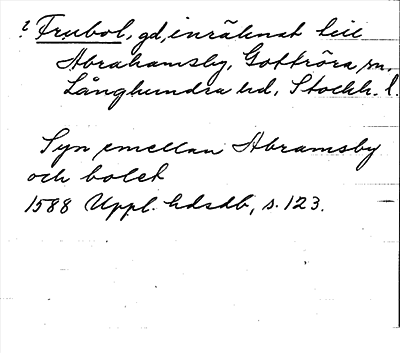 ? Frubol, gd, inräknat till
Abrahamsby, Gottröra sn,
Långhundra hd, Stockh. l.
Syn emellan Abramsby
och bolet
1588 Uppl. hdsdb, s. 123.